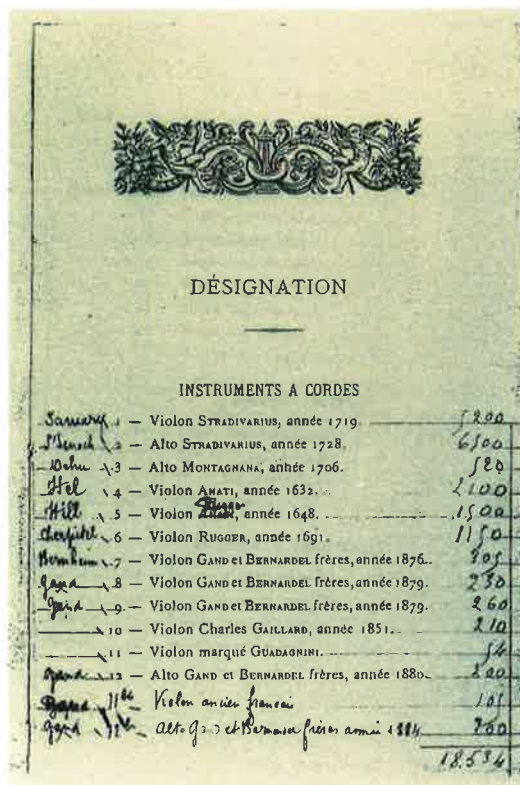 DÉSIGNATION
INSTRUMENTS A CORDES
1 — Violon STRADIVARIUS, année 1719. 5200
2 — Alto STRADIVARIUS, année 1728. 6500
3 — Alto MONTAGNANA, année 1706. 520
Hel 4 — Violon AMATI, année 1632. 2100
Hill 5 — Violon Rugger, année 1648. 1500
Cherpitel 6 — Violon RUGGER, année 1691. 1150
Bernheim 7 — Violon GAND et BERNARDEL frères, année 1876. 305
Gand 8 — Violon GAND et BERNARDEL frères, année 1879. 230
Gand 9 — Violon GAND et BERNARDEL frères, année 1879. 260
10 — Violon Charles GAILLARD, année 1851. 210
11 — Violon marqué GUADAGNINI. 54
Gand 12 — Alto GAND et BERNARDEL frères, année 1880. 200
Gand 11 bis Violon ancien français 105
Gand Alto Gand et Bernardel frères année 1884 200
18.534